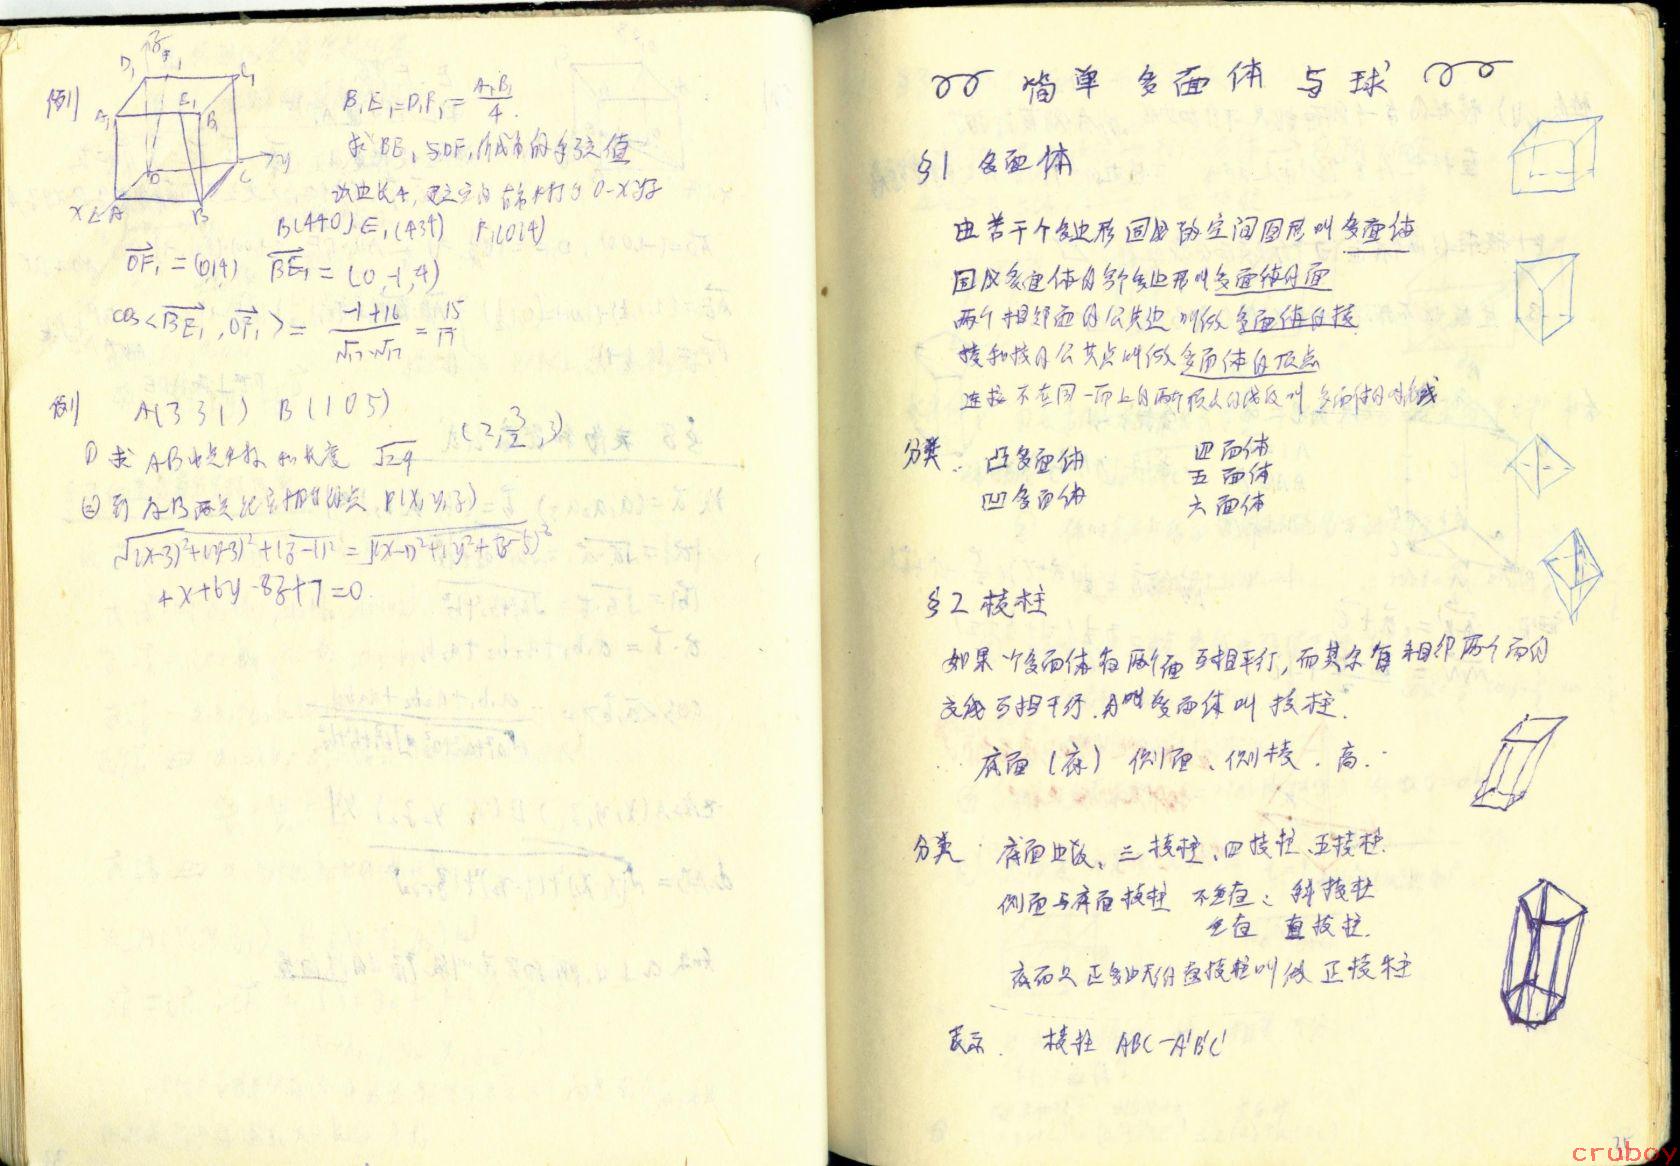 例
D₁ z F₁ C₁
A₁ E₁ B₁
D C y
x A B
B₁E₁=D₁F₁=A₁B₁/4.
求BE₁与DF₁所成角的余弦值
设边长4,建立空间直角坐标为O-xyz
B(4 4 0) E₁(4 3 4) F₁(0 1 4)
DF₁=(0 1 4) BE₁=(0,-1,4)
cos<BE₁,DF₁>=(-1+16)/(√17·√17)=15/17
例 A(3 3 1) B(1 0 5)
① 求AB中点坐标和长度 √29 (2,3/2,3)
② 到A B两点距离相等的点P(x,y,z)
√((x-3)²+(y-3)²+(z-1)²)=√((x-1)²+y²+(z-5)²)
4x+6y-8z+7=0
简单多面体与球
§1 多面体
由若干个多边形围成的空间图形叫多面体
围成多面体的各个多边形叫多面体的面
两个相邻面的公共边叫做多面体的棱
棱和棱的公共点叫做多面体的顶点
连接不在同一面上的两个顶点的线段叫多面体的对角线
分类. 凸多面体 四面体
凹多面体 五面体
六面体
§2 棱柱
如果一个多面体有两个面互相平行,而其余每相邻两个面的
交线互相平行.的多面体叫棱柱.
底面(底) 侧面、侧棱.高.
分类 底面边数、三棱柱、四棱柱、五棱柱.
侧面与底面棱柱 不垂直:斜棱柱
垂直 直棱柱.
底面为正多边形的直棱柱叫做正棱柱
表示. 棱柱 ABC-A'B'C'
35
cruboy